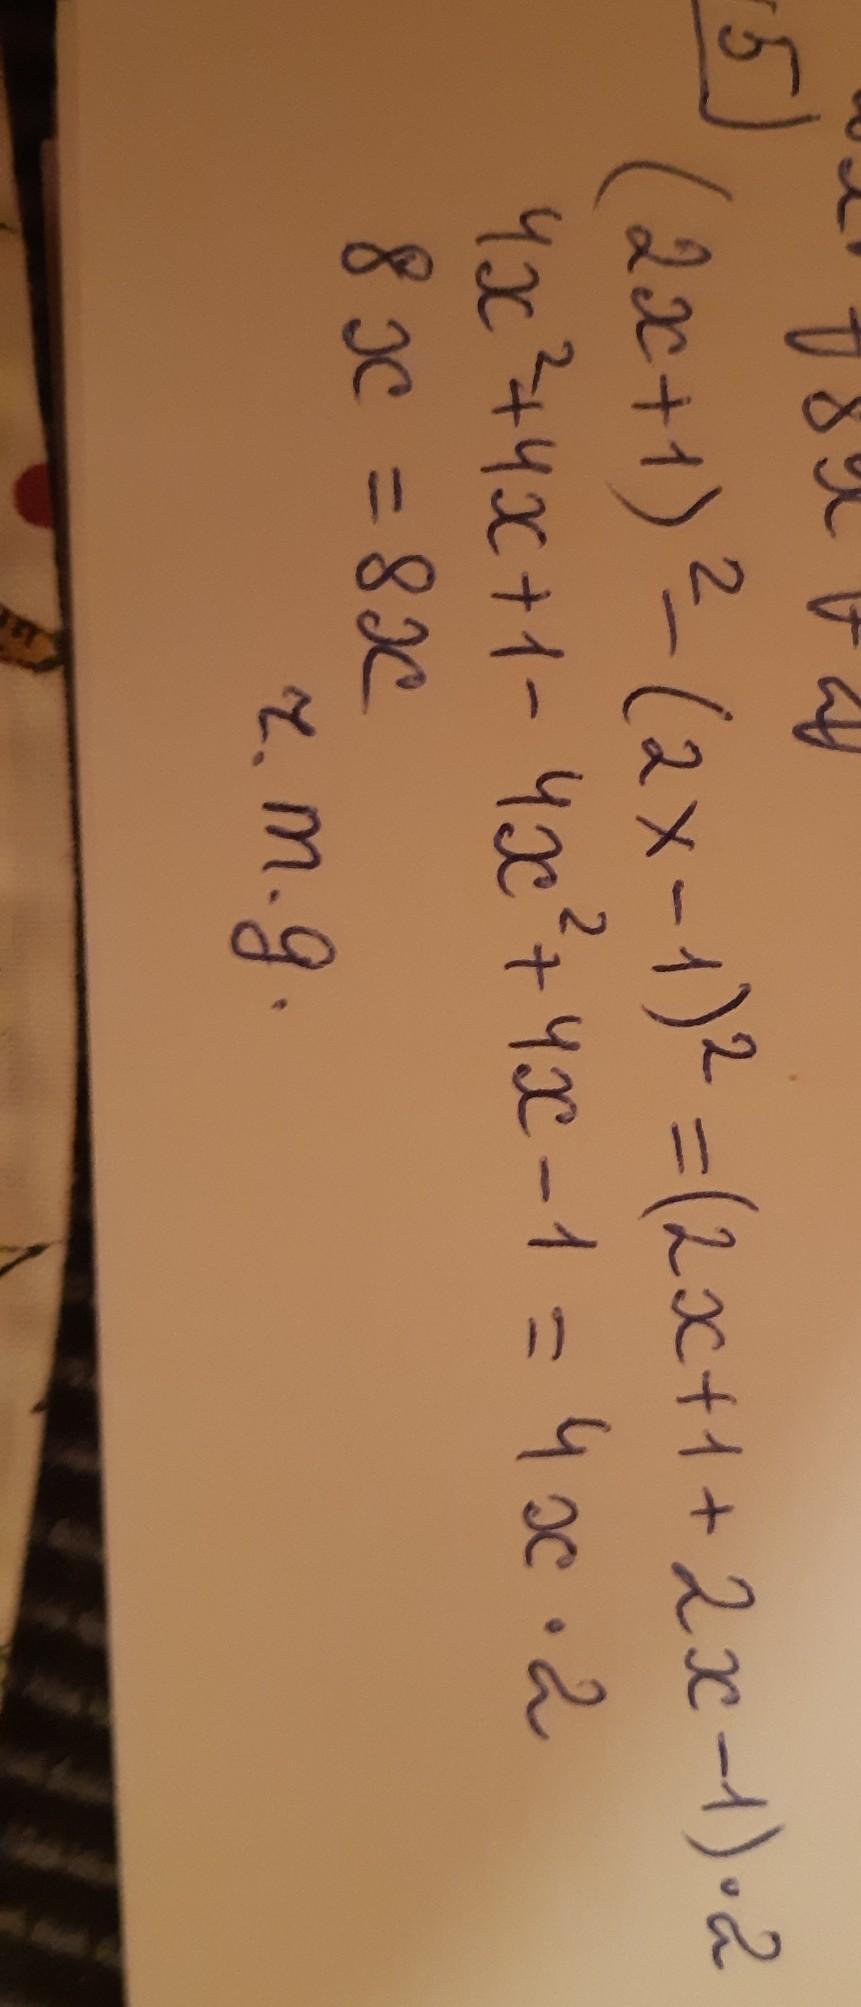 5
(2x+1)² - (2x-1)² = (2x+1+2x-1)·2
4x²+4x+1-4x²+4x-1 = 4x·2
8x = 8x
ч.т.д.